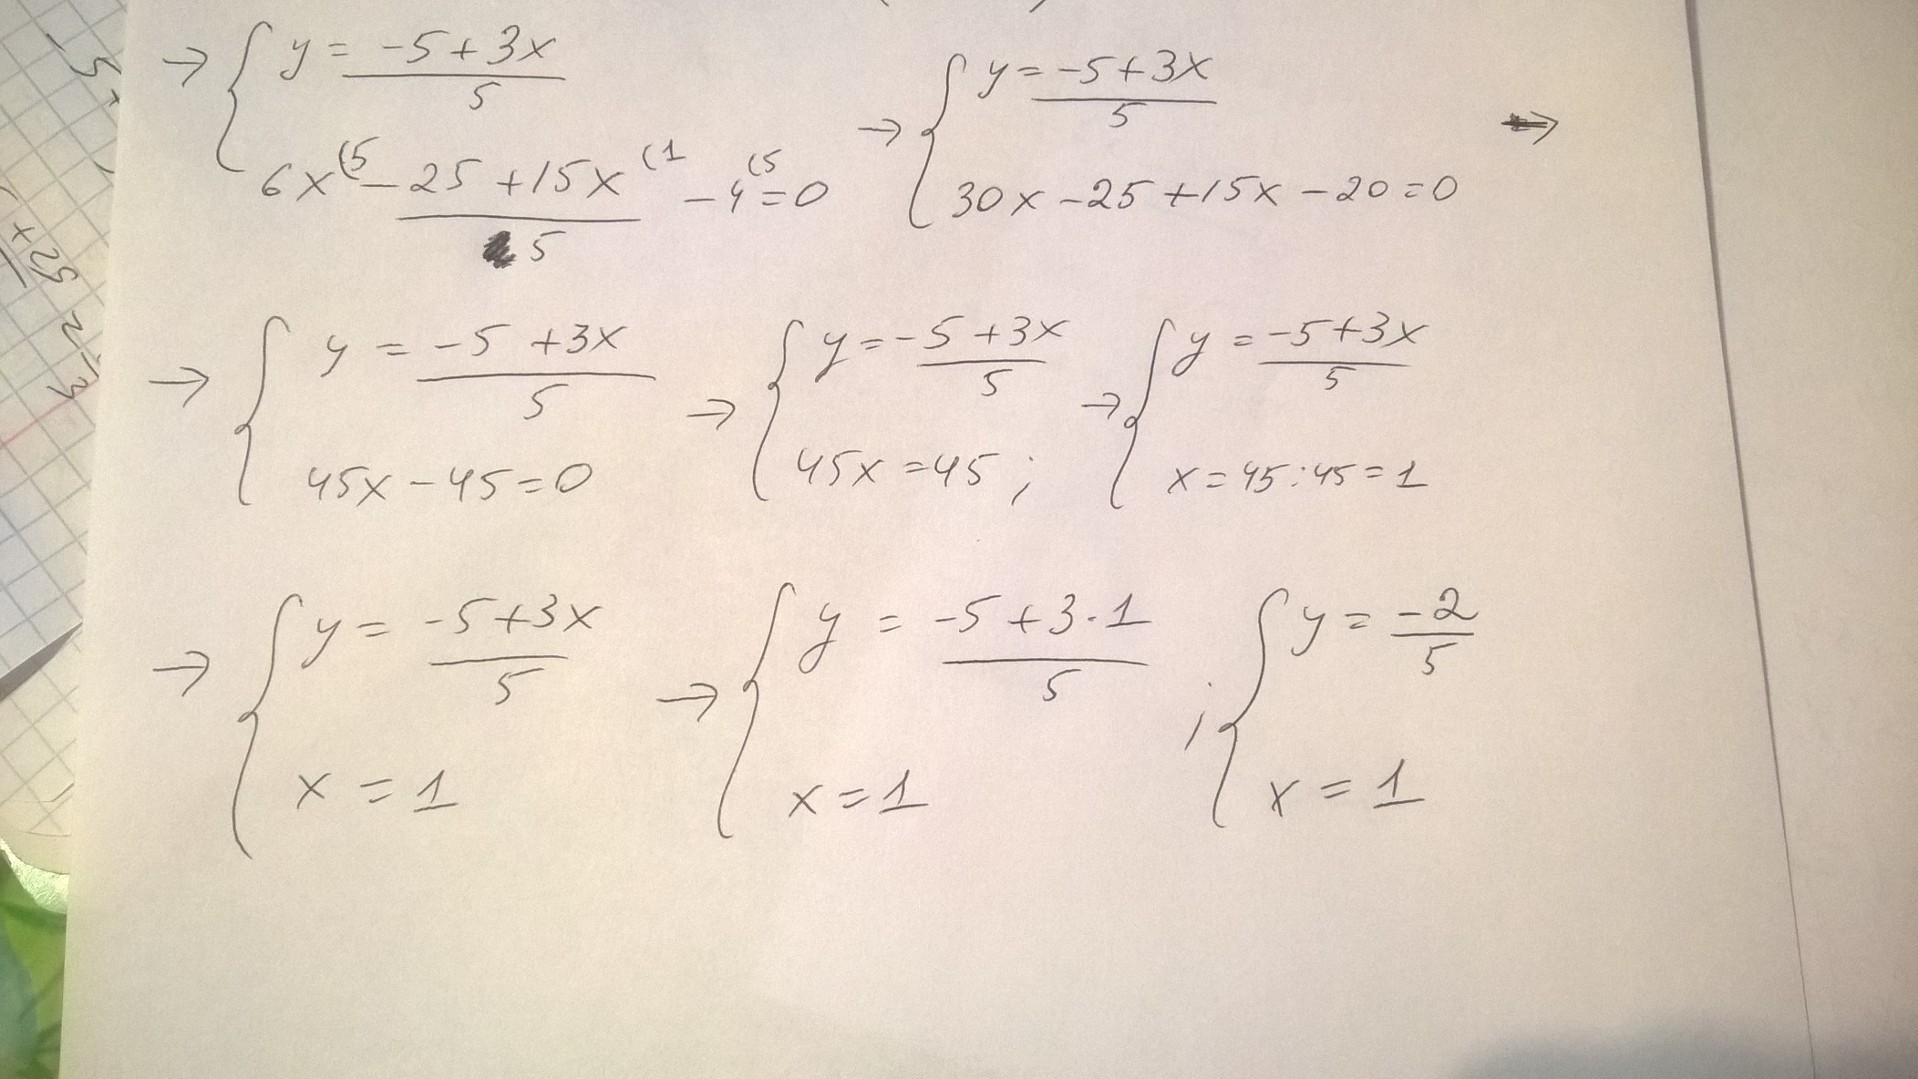 → { y = -5 + 3x / 5
6x(5 - 25 + 15x(1 / 5 - 4(5 = 0
→ { y = -5 + 3x / 5
30x - 25 + 15x - 20 = 0 →
→ { y = -5 + 3x / 5
45x - 45 = 0
→ { y = -5 + 3x / 5
45x = 45 ;
→ { y = -5 + 3x / 5
x = 45 : 45 = 1
→ { y = -5 + 3x / 5
x = 1
→ { y = -5 + 3 · 1 / 5
x = 1 ;
{ y = -2 / 5
x = 1